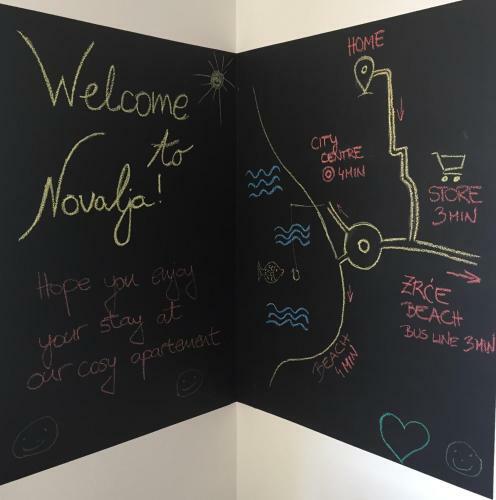 Welcome
to
Novalja!
Hope you enjoy
your stay at
our cosy apartement
HOME
CITY
CENTRE
4 MIN
STORE
3 MIN
ZRĆE
BEACH
BUS LINE 3 MIN
BEACH
4 MIN